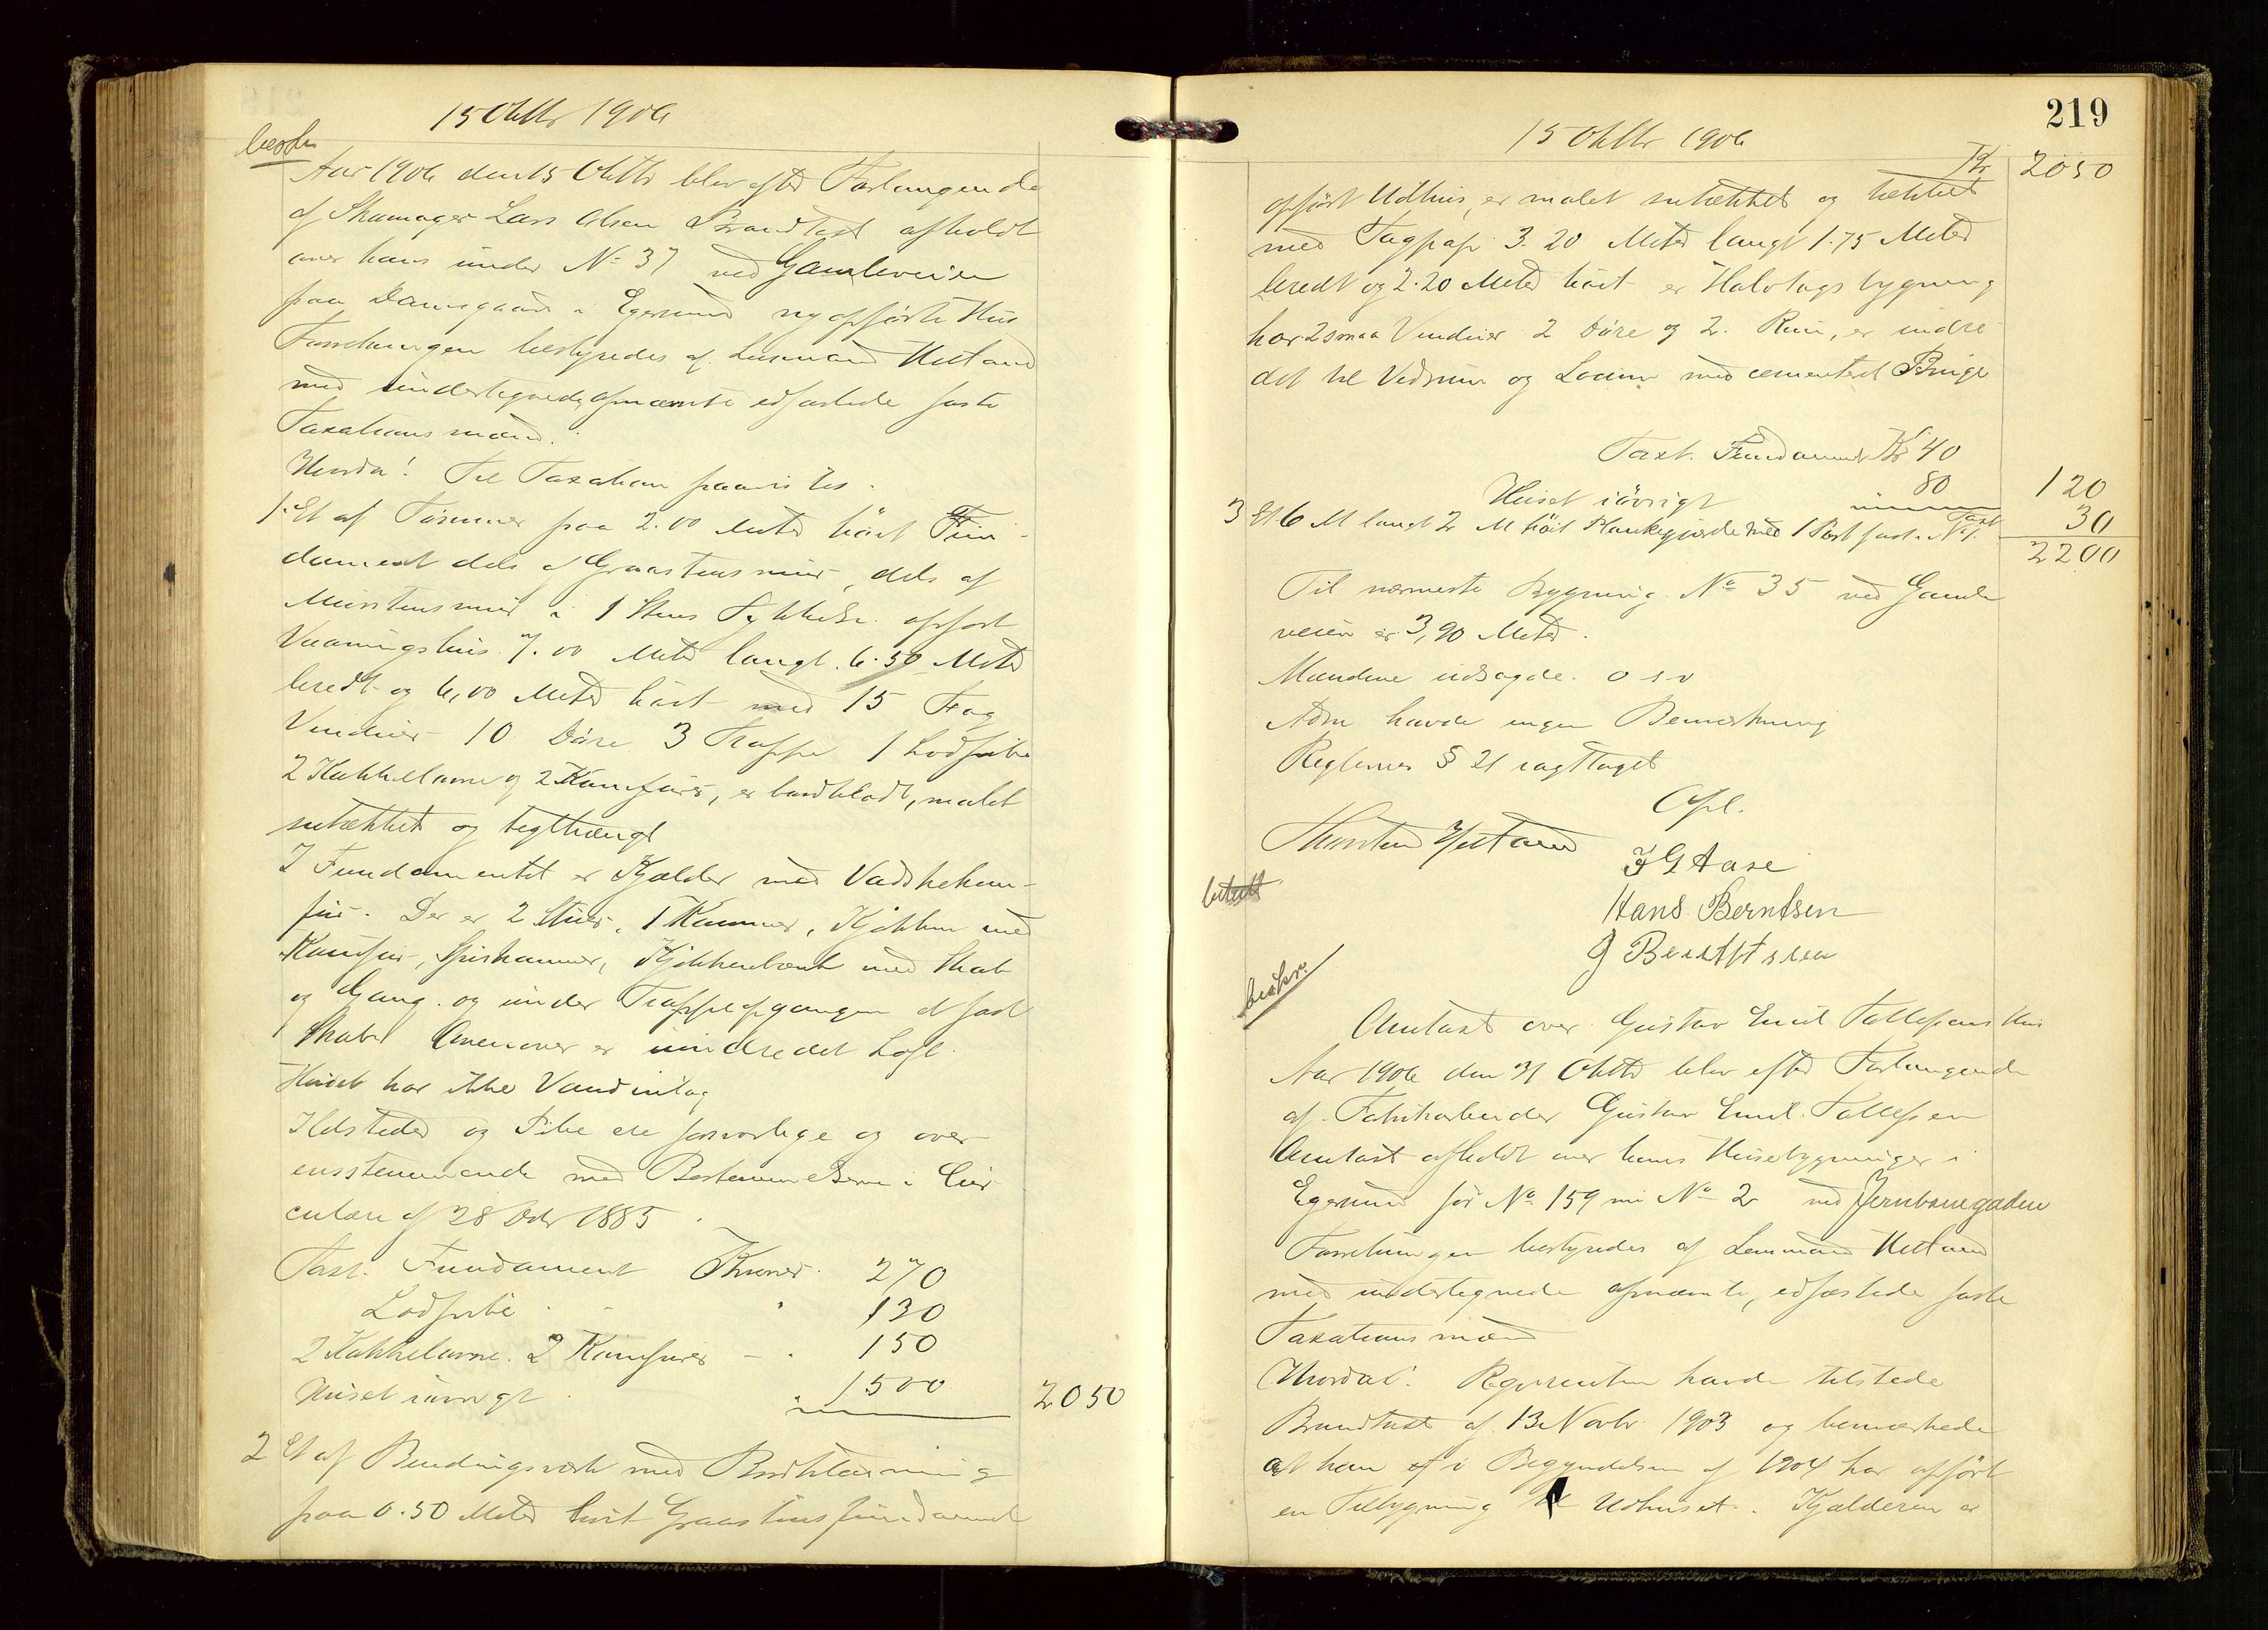 15 Oktbr 1906
beskr
Aar 1906 den 15 Oktbr blev efter Forlangende
af Skomager Lars Olsen Brandtaxt afholdt
over hans under No 37 ved Gamleveien
paa Damsgaard i Egersund nyopförte Hus
Forretningen bestyredes af Lensmand Hetland
med undertegnede, opnævnte edfæstede faste
Taxationsmænd.
Hvorda! Til Taxation paavistes.
1. Et af Tømmer paa 2.00 Meter höit Fun-
dament dels af Graastensmur, dels af
Murstensmur i 1 Stens Tykkelse opfört
Vaaningshus 7.00 Meter langt. 6.50 Meter
bredt og 6,00 Meter höit med 15 Fag
Vinduer 10 Döre 3 Trappe 1 Lodpibe
2 Kakkelovne og 2 Komfurer, er bordklædt, malet
sutækket og teglhængt
I Fundamentet er Kjælder med Vadskekom-
fur. Der er 2 Stuer, 1 Kammer, Kjökken med
Komfur, Spiskammer, Kjökkenbænk med Skab
og Gang. og under Trappeopgangen et fast
Skab Ovenover er uindredet Loft.
Huset har ikke Vandindlag
Ildsteder og Pibe ere forsvarlige og over-
ensstemmende med Bestemmelserne i Cir-
culære af 28 Dcbr 1885.
Taxt. Fundament Kroner 270
Lodpibe " 130
2 Kakkelovne. 2 Komfurer - " 150
Huset iövrigt " 1500 2050
2 Et af Bindingsværk med Bordklædning
paa 0.50 Meter höit Graastensfundament
219
15 Oktbr 1906
Kr 2050
opfört Udhus, er malet sutækket og tækket
med Tagpap 3.20 Meter langt 1.75 Meter
bredt og 2.20 Meter höit er Halvtagsbygning
har 2 smaa Vinduer 2 Döre og 2 Rum, er indre-
det til Vedrum og Locum med cementeret Binge
Taxt. Fundament Kr 40
Huset iövrigt " 80 120
3 Et 6 M langt 2 M höit Plankegjærde med 1 Port Taxt. 30
2200
Til nærmeste Bygning No 35 ved Gamle-
veien er 3,90 Meter.
Mændene udsagde o s v
Adm havde ingen Bemærkning
Reglernes § 21 iagttaget
Opl.
Thorsten Hetland
J G Aase
Hans Berntsen
J Bentsen
betalt
beskr.
Omtaxt over Gustav Emil Tollefsens Hus
Aar 1906 den 31 Oktbr blev efter Forlangende
af Fabrikarbeider Gustav Emil Tollefsen
Omtaxt afholdt over hans Husebygninger i
Egersund för No 159 nu No 2 ved Jernbanegaden
Forretningen bestyredes af Lensmand Hetland
med undertegnede opnævnte, edfæstede faste
Taxationsmænd
Hvorda! Reqvirenten havde tilstede
Brandtaxt af 13 Novbr 1903 og bemærkede
at han i Begyndelsen af 1904 har opfört
en Tilbygning til Udhuset. Kjælderen er